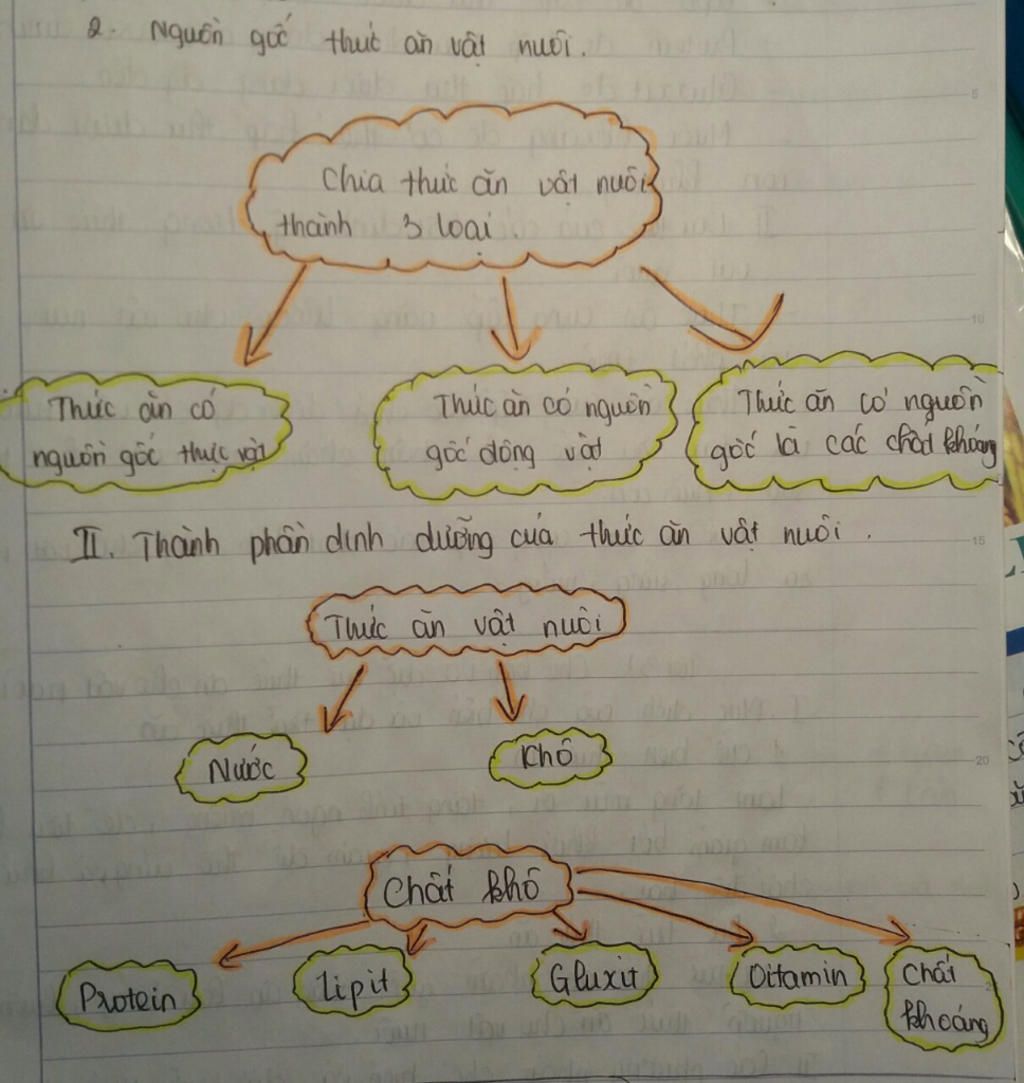 2. Nguồn gốc thức ăn vật nuôi.
Chia thức ăn vật nuôi
thành 3 loại.
Thức ăn có
nguồn gốc thực vật
Thức ăn có nguồn
gốc động vật
Thức ăn có nguồn
gốc là các chất khoáng
II. Thành phần dinh dưỡng của thức ăn vật nuôi.
Thức ăn vật nuôi
Nước
Khô
Chất khô
Protein
Lipit
Gluxit
Vitamin
Chất
khoáng